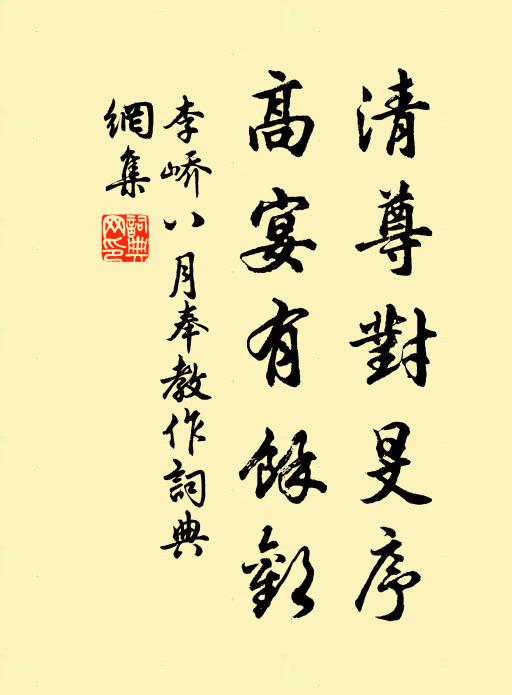 清尊對旻序
高宴有餘歡
李峤八月奉教作詞典
網集
詞典
网印